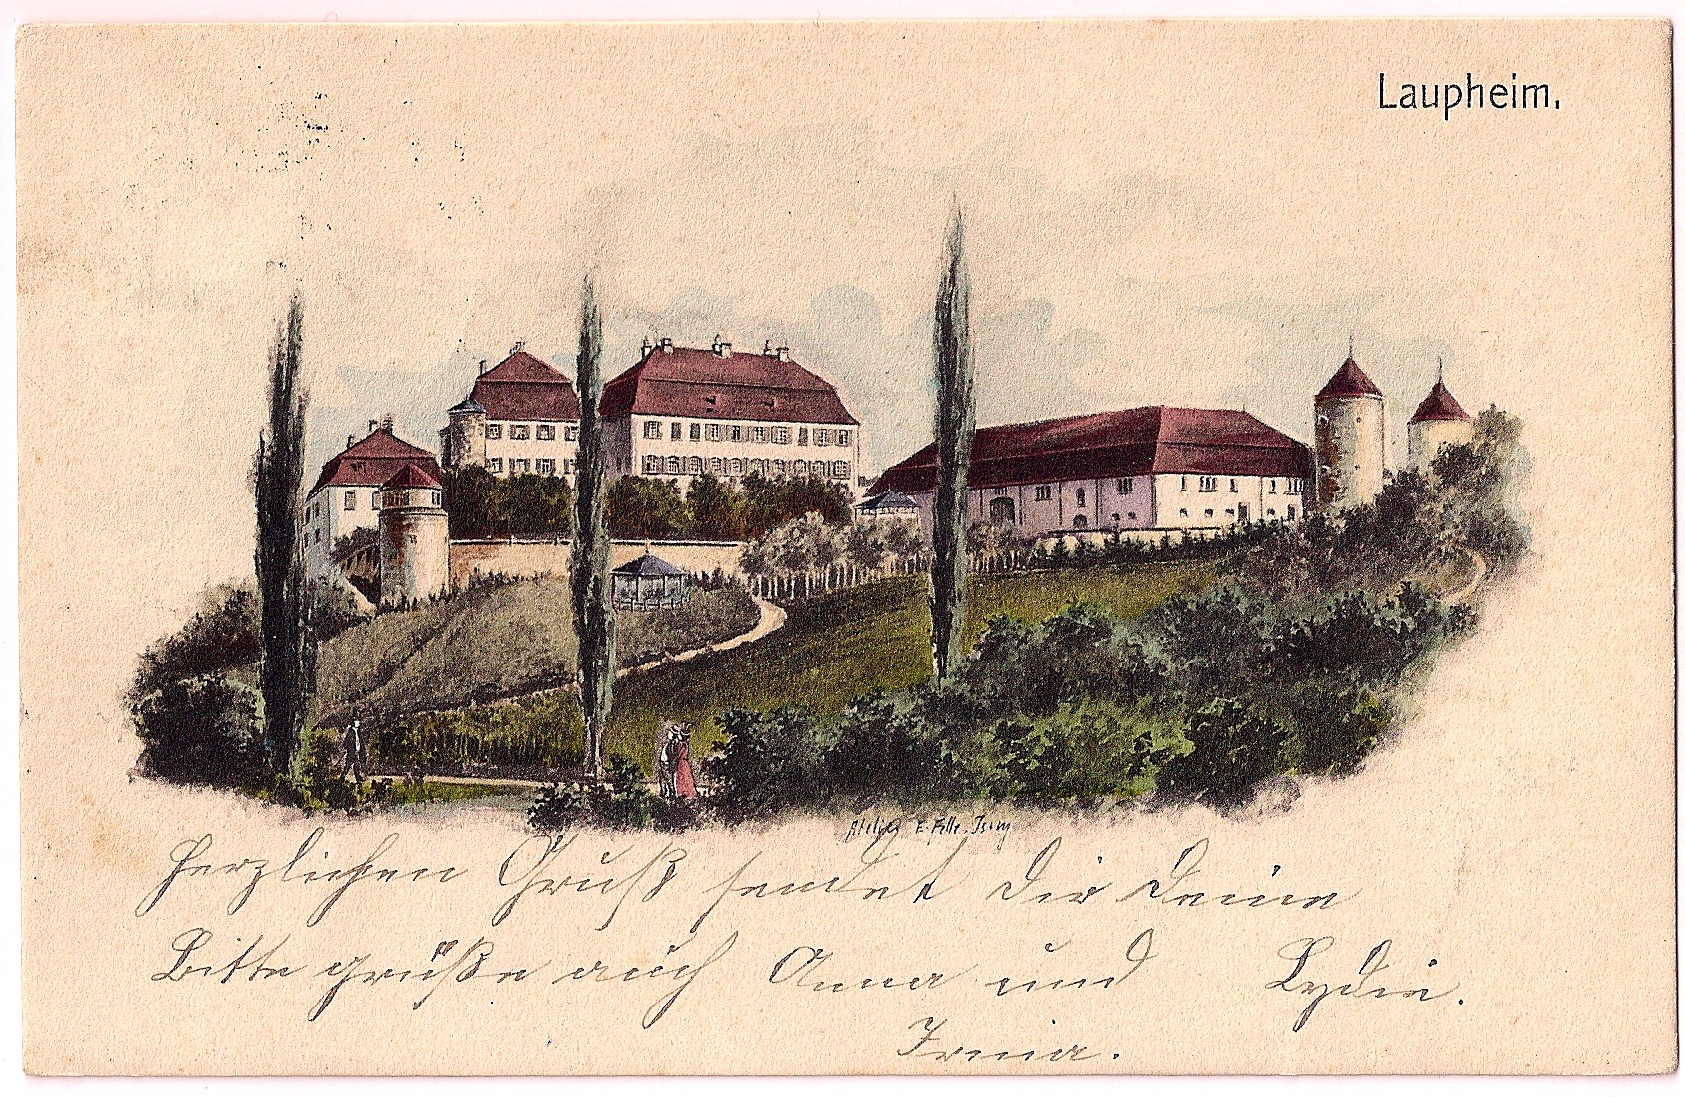 Laupheim.
Atelier E. Felle. Isny
Herzlichen Gruß sendet Dir Deine
Bitte grüße auch Anna und Lydia.